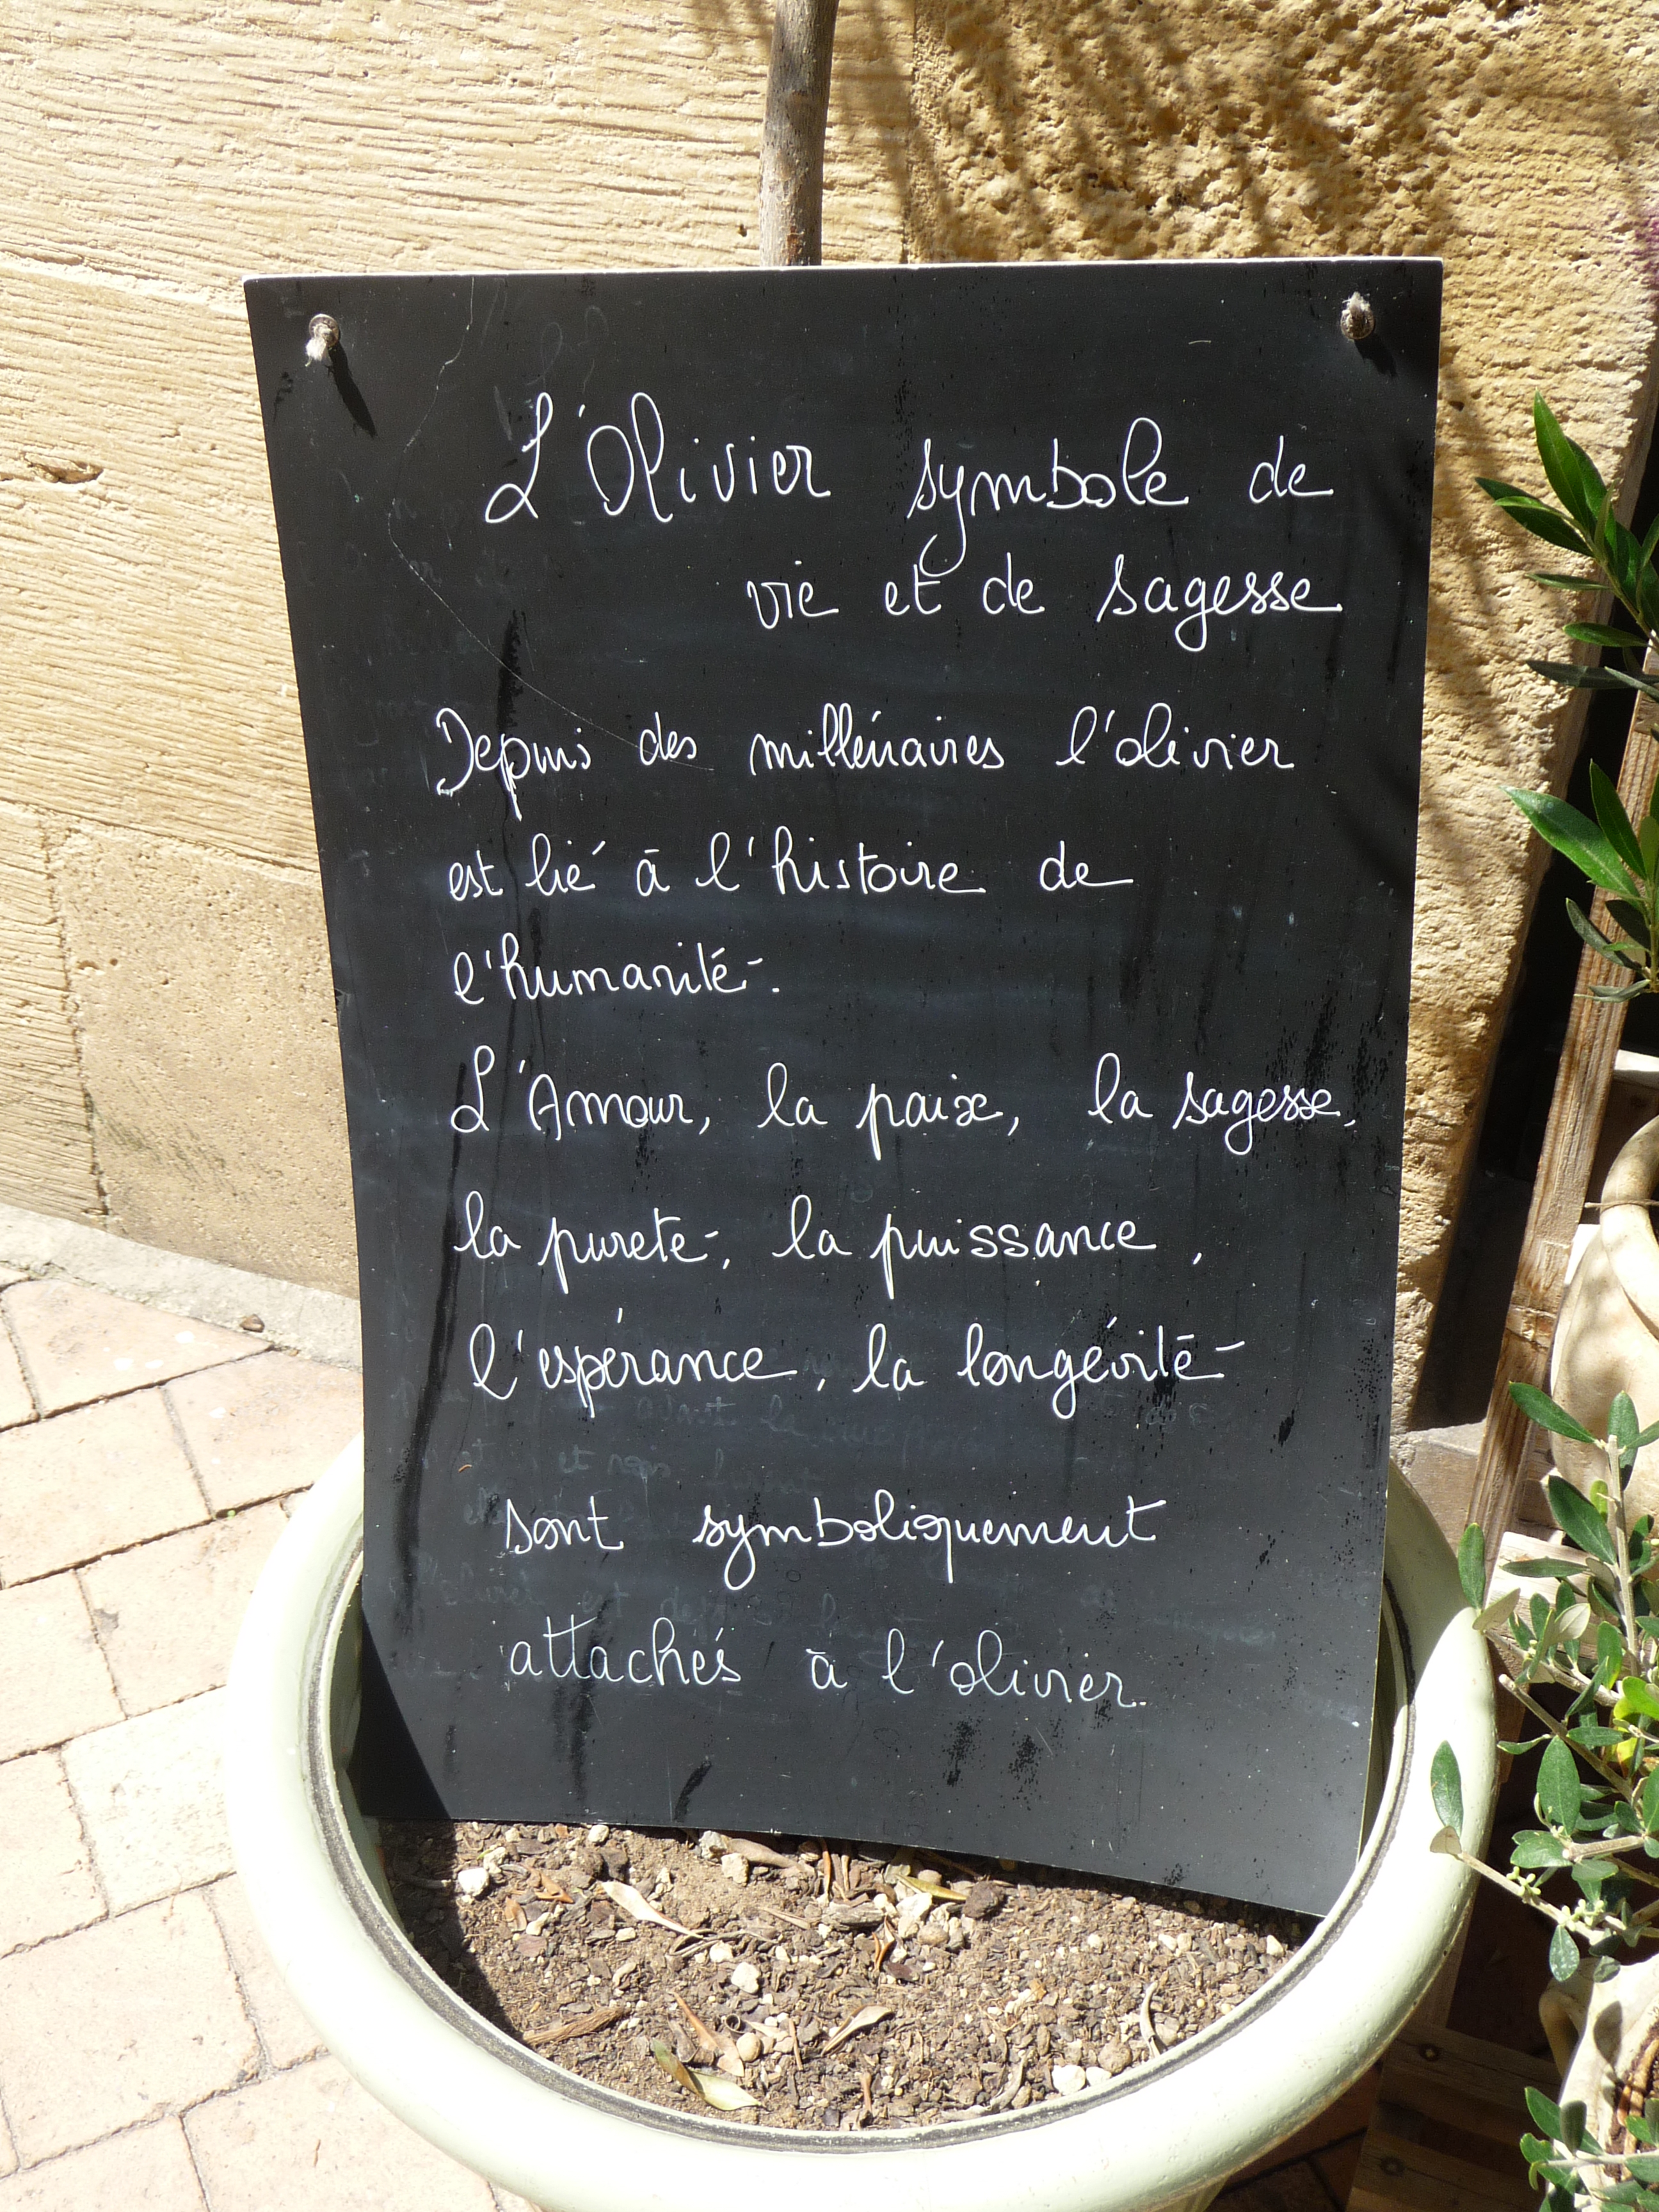 L'Olivier symbole de
vie et de sagesse
Depuis des millénaires l'olivier
est lié à l'histoire de
l'humanité.
L'Amour, la paix, la sagesse,
la pureté, la puissance,
l'espérance, la longévité
sont symboliquement
attachés à l'olivier.